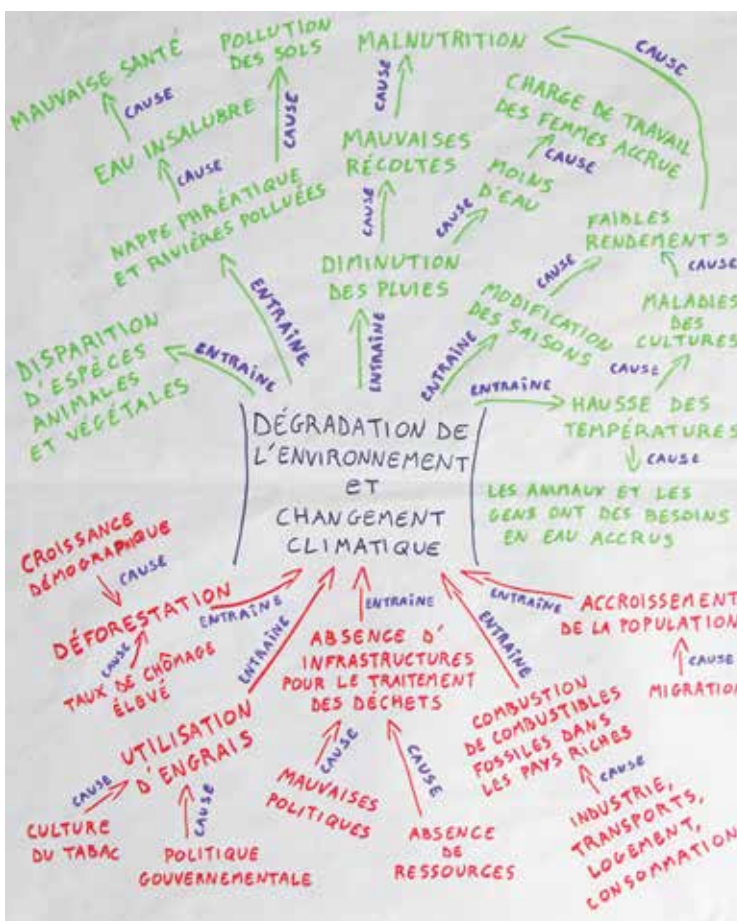 MAUVAISE SANTÉ
CAUSE
EAU INSALUBRE
CAUSE
NAPPE PHRÉATIQUE
ET RIVIÈRES POLLUÉES
ENTRAÎNE
POLLUTION
DES SOLS
CAUSE
MALNUTRITION
CAUSE
MAUVAISES
RÉCOLTES
CAUSE
DIMINUTION
DES PLUIES
ENTRAÎNE
CHARGE DE TRAVAIL
DES FEMMES ACCRUE
CAUSE
MOINS
D'EAU
CAUSE
CAUSE
FAIBLES
RENDEMENTS
CAUSE
MODIFICATION
DES SAISONS
ENTRAÎNE
CAUSE
MALADIES
DES
CULTURES
CAUSE
ENTRAÎNE
HAUSSE DES
TEMPÉRATURES
CAUSE
LES ANIMAUX ET LES
GENS ONT DES BESOINS
EN EAU ACCRUS
DISPARITION
D'ESPÈCES
ANIMALES
ET VÉGÉTALES
ENTRAÎNE
DÉGRADATION DE
L'ENVIRONNEMENT
ET
CHANGEMENT
CLIMATIQUE
CROISSANCE
DÉMOGRAPHIQUE
CAUSE
DÉFORESTATION
ENTRAÎNE
CAUSE
TAUX DE CHÔMAGE
ÉLEVÉ
UTILISATION
D'ENGRAIS
ENTRAÎNE
CAUSE
CULTURE
DU TABAC
CAUSE
POLITIQUE
GOUVERNEMENTALE
ENTRAÎNE
ABSENCE D'
INFRASTRUCTURES
POUR LE TRAITEMENT
DES DÉCHETS
CAUSE
MAUVAISES
POLITIQUES
CAUSE
ABSENCE
DE
RESSOURCES
ENTRAÎNE
COMBUSTION
DE COMBUSTIBLES
FOSSILES DANS
LES PAYS RICHES
CAUSE
INDUSTRIE,
TRANSPORTS,
LOGEMENT,
CONSOMMATION
ENTRAÎNE
ACCROISSEMENT
DE LA POPULATION
CAUSE
MIGRATION